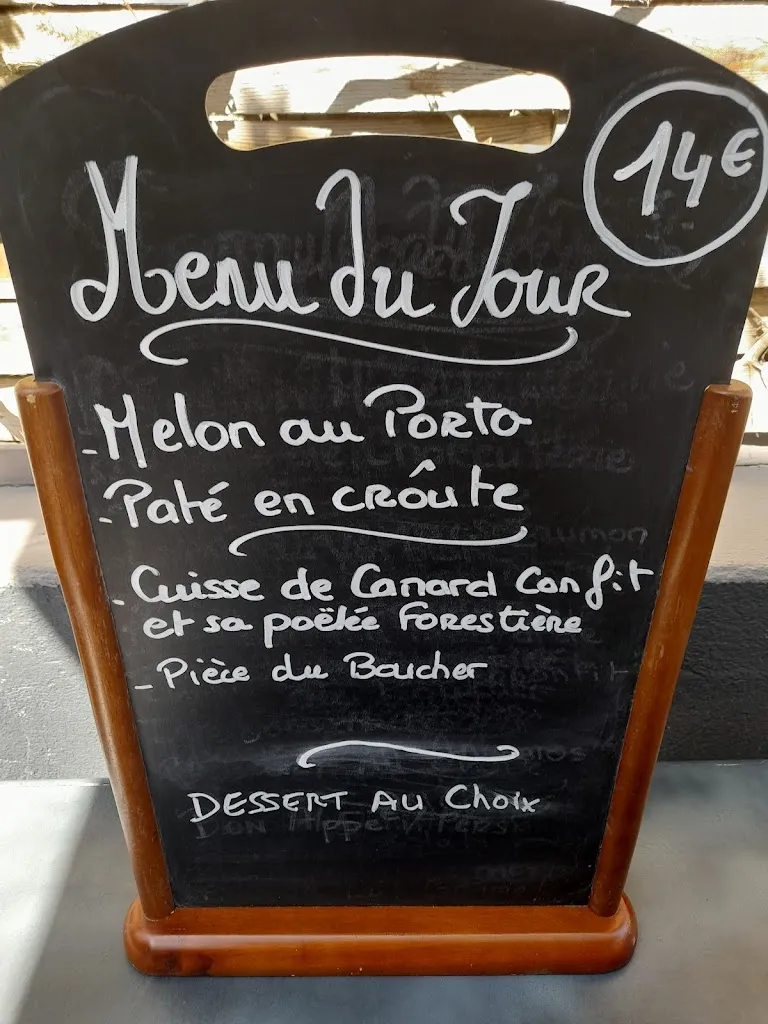 14€
Menu du Jour
- Melon au Porto
- Paté en crôute
- Cuisse de Canard Confit
et sa poëlée Forestière
- Pièce du Boucher
DESSERT AU Choix